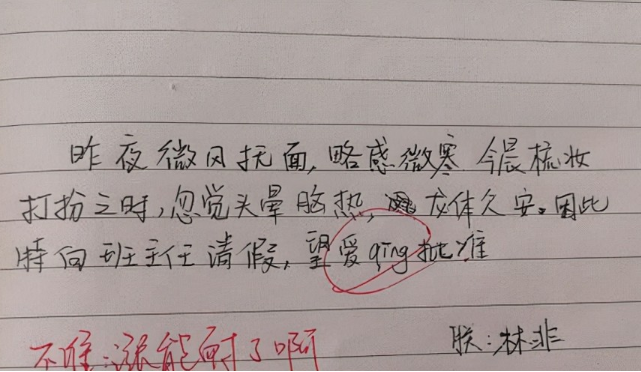 昨夜微风抚面，略感微寒 今晨梳妆
打扮之时，忽觉头晕脑热，龙体久安。因此
特向班主任请假，望爱qing批准
朕：林非
不准：涨能耐了啊